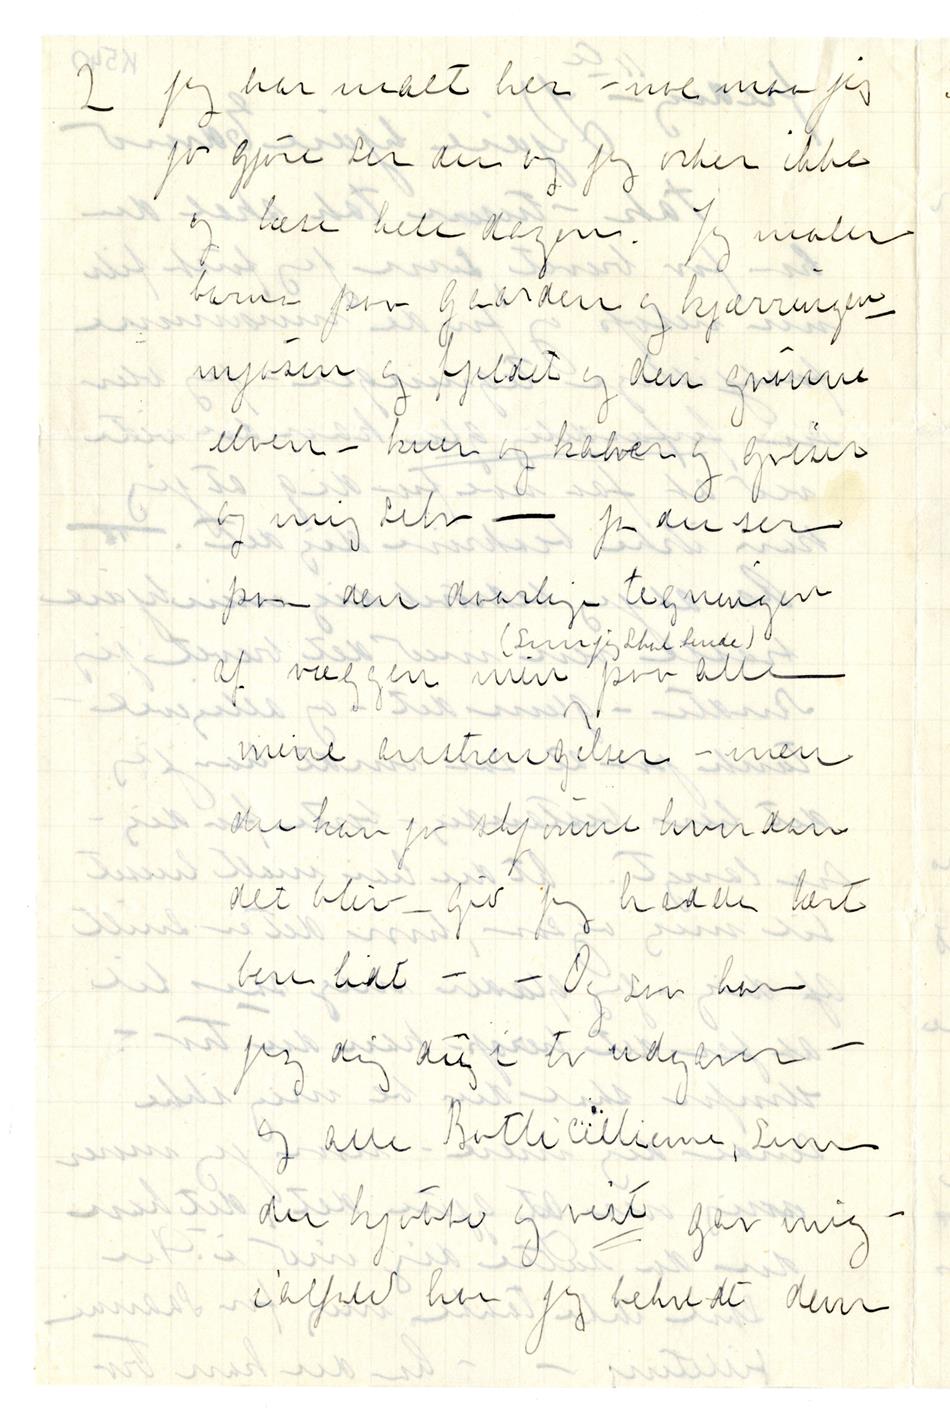 2 jeg har malt her – noe maa jeg
jo gjøre ser du og jeg orker ikke
og læse hele dagen. Jeg maler
barna paa Gaarden og kjærringen –
mjøsen og fjeldet og den grønne
elven – kuer og kalver og griser
og mig selv — ja du ser
paa den daarlige tegningen
(som jeg skal sende)
af væggen min paa alle
mine anstrengelser – men
du kan jo skjønne hvordan
det blir – gid jeg hadde lært
bere lidt – – Og saa har
jeg dig i to udgaver –
og alle Botticellierne, som
du kjøbte og vist gav mig –
ialfald har jeg beholdt dem